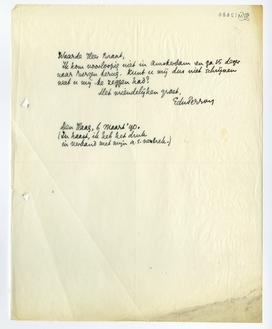 Waarde Heer Kraat,
Ik kom voorloopig niet in Amsterdam en ga 15 dezer
naar Bergen terug. Kunt u mij dus niet schrijven
wat u mij te zeggen had?
Met vriendelijken groet,
EduPerron
Den Haag, 6 Maart '40.
(In haast, ik heb het druk
in verband met mijn a.s. vertrek.)